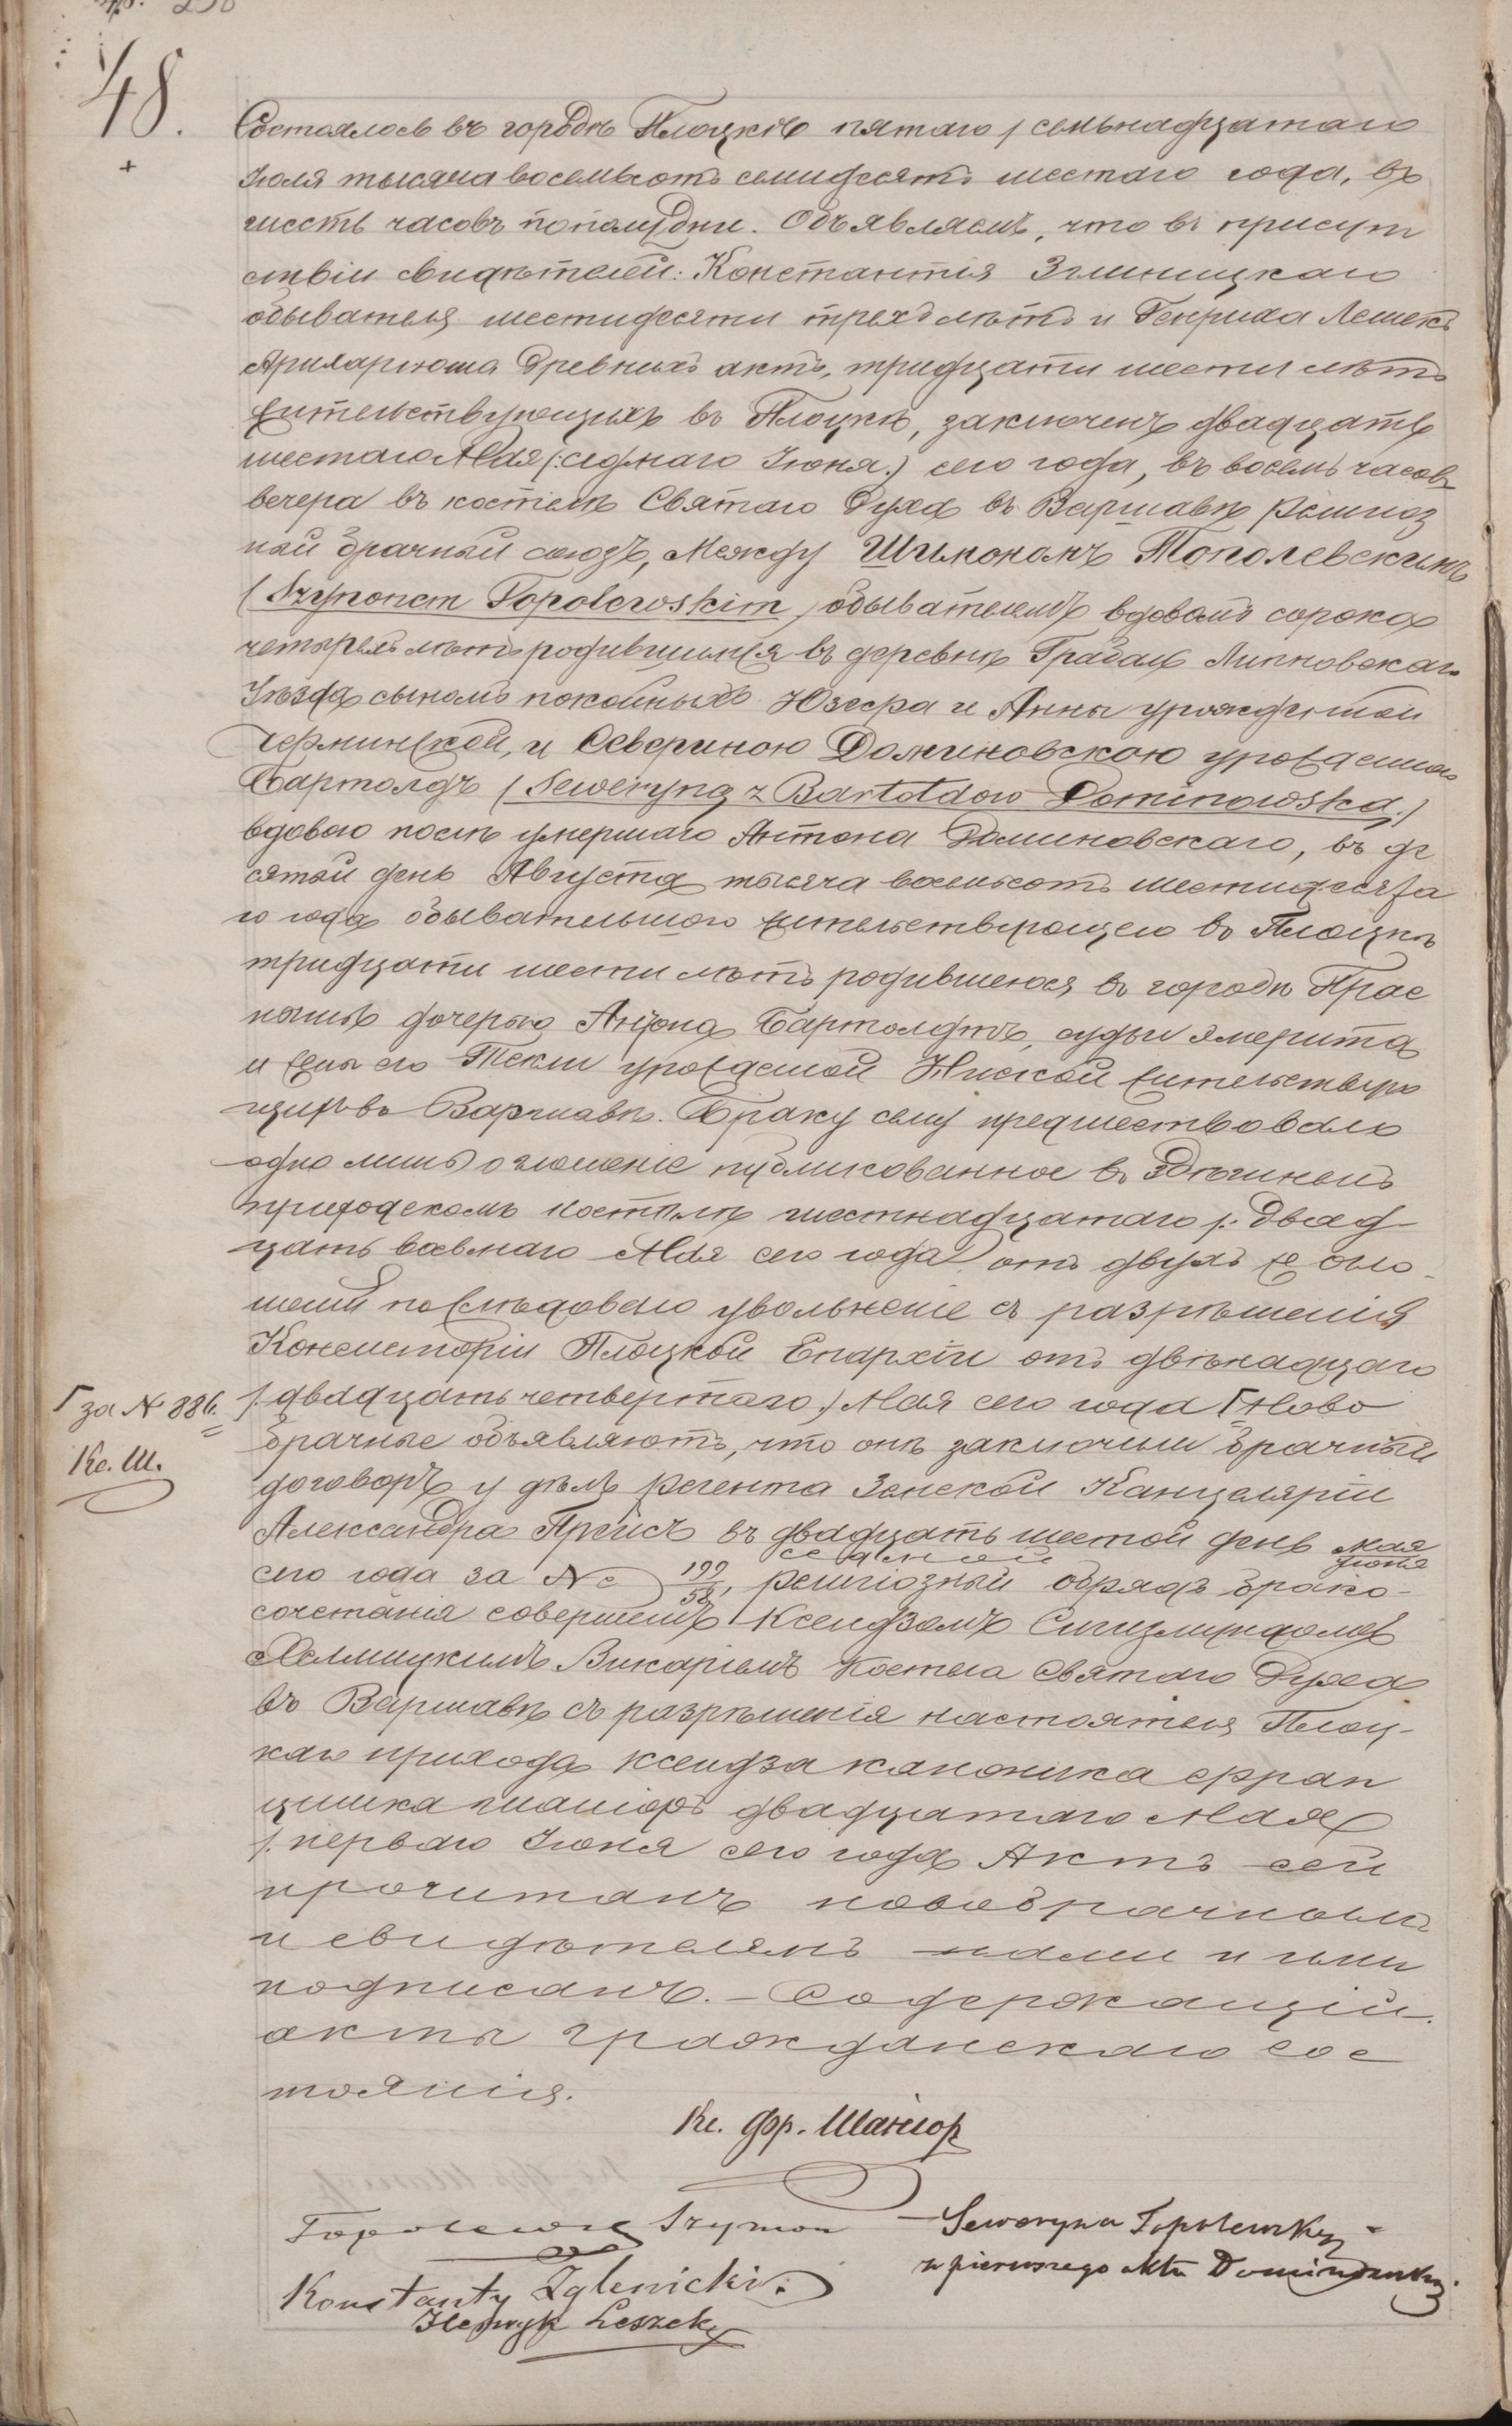 48.
+
Состоялось въ городѣ Плоцкѣ пятаго / семьнадцатаго
Іюля тысяча восемьсотъ семидесятъ шестаго года, въ
шесть часовъ пополудни. Объявляемъ, что въ присут
ствіи свидѣтелей: Константія Згленицкаго
обывателя шестидесяти трехъ лѣтъ и Генриха Лешекъ
Архиваріюша древнихъ актъ, тридцати шести лѣтъ
жительствующихъ въ Плоцкѣ, заключенъ двадцать
шестаго Мая (: седмаго Іюня.) сего года, въ восемь часовъ
вечера въ костелѣ Святаго Духа въ Варшавѣ религіоз
ный брачный союзъ, Между Шимономъ Тополевскимъ
(Szymonem Topolewskim) обывателемъ вдовомъ сорока
четырехъ лѣтъ родившимся въ деревнѣ Грабале Липновскаго
Уѣзда сыномъ покойныхъ Юзефа и Анны урожденной
Черминской, и Севериною Доминовскою урожденною
Бартолдъ (Seweryną z Bartoldów Dominowską.)
вдовою послѣ умершаго Антона Доминовскаго, въ де
сятый день Августа тысяча восемьсотъ шестидесята
го года обывательною жительствующею въ Плоцкѣ
тридцати шести лѣтъ родившеюся въ городѣ Прас
нышѣ дочерью Антона Бартолдтъ, судьи эмерита
и жены его Текли урожденной Ниской жительствую
щихъ въ Варшавѣ. Браку сему предшествовало
одно лишь оглошеніе публикованное въ здѣшнемъ
приходскомъ костелѣ шестнадцатаго /: двад
цать восьмаго Мая сего года отъ двухъ же огло
шеній послѣдовало увольненіе съ разрѣшенія
Консисторіи Плоцкой Епархіи отъ двѣнадцаго
/: двадцать четвертаго.) Мая сего года Г Ново
Г за № 886.
Кс. Ш.
брачные объявляютъ, что онѣ заключили брачный
договоръ у дѣлъ регента Земской Канцеляріи
Александра Прейсъ въ двадцать шестой день Мая
седьмой Іюня
сего года за № 199/58, религіозный обрядъ брако-
сочетанія совершенъ Ксендзомъ Сигизмундомъ
Хелмицкимъ Викаріемъ Костела Святаго Духа
въ Варшавѣ съ разрѣшенія настоятеля Плоц-
каго прихода ксендза каноника Фран
цишка Шаніоръ двадцатаго Мая
/: перваго Іюня сего года Актъ сей
прочитанъ новобрачнымъ
и свидѣтелямъ нами и ими
подписанъ. – Содержащій
акты гражданскаго сос
тоянія.
Кс. Фр. Шаніор
Topolewski Szymon
Seweryna Topolewska
z pierwszego Mża Dominowska.
Konstanty Zglenicki.
Henryk Leszek